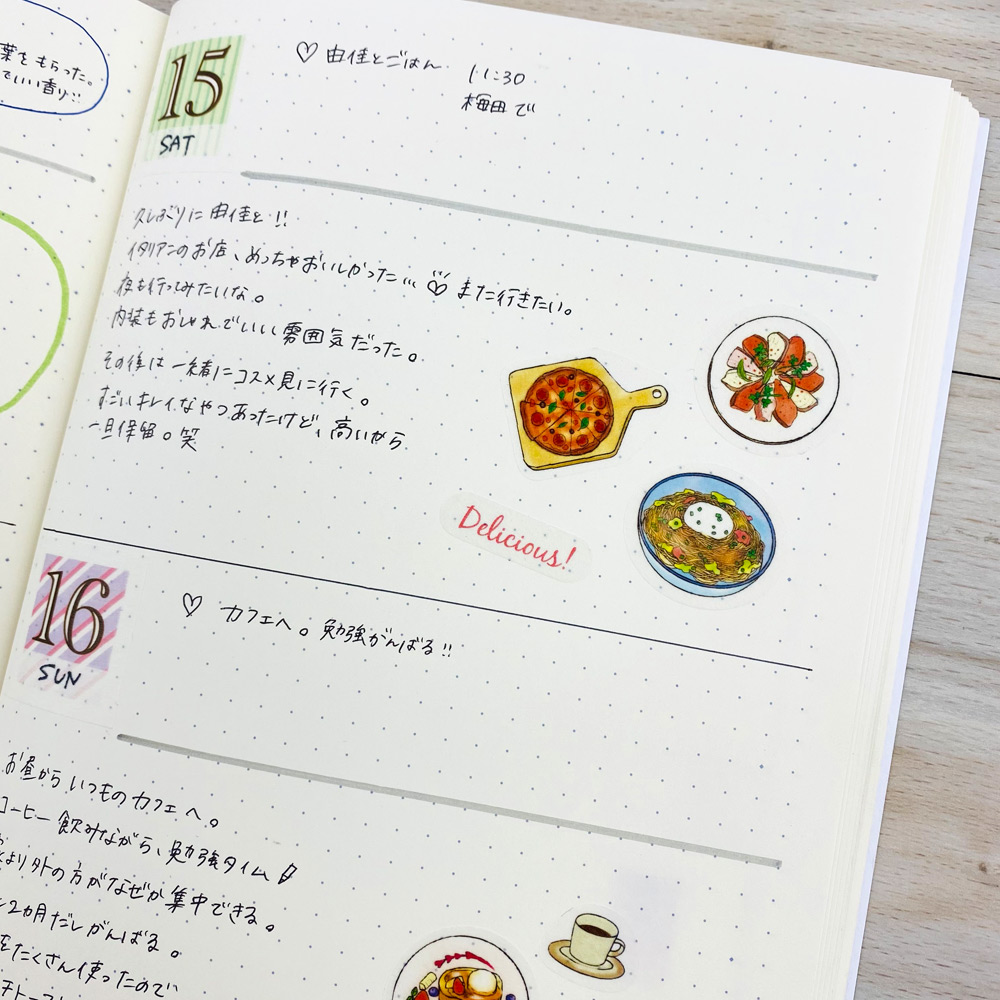 葉をもらった。
でいい香り!!
15
SAT
♡ 由佳とごはん 11:30
梅田で
久しぶりに由佳と!!
イタリアンのお店、めっちゃおいしかった…♡ また行きたい。
夜も行ってみたいな。
内装もおしゃれでいいし雰囲気だった。
その後は一緒にコスメ見に行く。
すごいキレイなやつあったけど、高いから
一旦保留。笑
Delicious!
16
SUN
♡ カフェへ。勉強がんばる!!
お昼からいつものカフェへ。
コーヒー飲みながら、勉強タイム
より外の方がなぜか集中できる。
2カ月だしがんばる。
をたくさん使ったので
チトースト